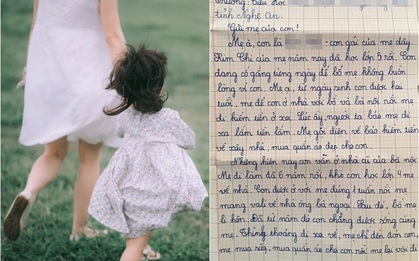 Trường: Tiểu học
tỉnh Nghệ An.
Gửi mẹ của con!
Mẹ à, con là - con gái của mẹ đây.
Kim Chi của mẹ năm nay đã học lớp 5 rồi. Con
đang cố gắng từng ngày để bố mẹ không buồn
lòng vì con. Mẹ ạ, từ ngày sinh con được hai
tuổi, mẹ để con ở nhà với bố và bà nội nói mẹ
đi kiếm tiền ở xa. Lúc ấy, người ta bảo mẹ đi
xa làm tiền lắm. Mẹ gọi điện về bảo kiếm tiền
về xây nhà, mua quần áo đẹp cho con.
Nhưng hiện nay con vẫn ở nhà cũ của bà nội
Mẹ đi làm đã 6 năm rồi, khi con học lớp 4 mẹ
về nhà. Con được ở với mẹ đúng 1 tuần rồi mẹ
mang vali về nhà ông bà ngoại. Sau đó, bố mẹ
li hôn. Đã từ năm đó con chẳng được sống cùng
mẹ. Thỉnh thoảng đi xa về, mẹ chỉ đến đón con,
mẹ mua sữa, mua quần áo cho con rồi mẹ lại vội đi